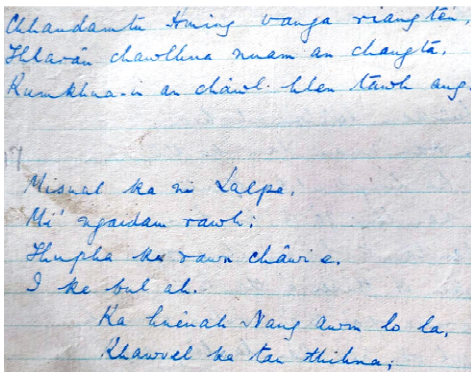 Chhandamtu Hming vanga riangten,
Thlarau chawlhna nuam an changta,
Kumkhua-in an châwl hlen tawh ang.
17
Misual ka ni Lalpa,
Mi' ngaidam rawh;
Thupha ka rawn châwi e.
I ke bul ah.
Ka hnênah Nang awm lo la,
Khawvel ka tan thihna;